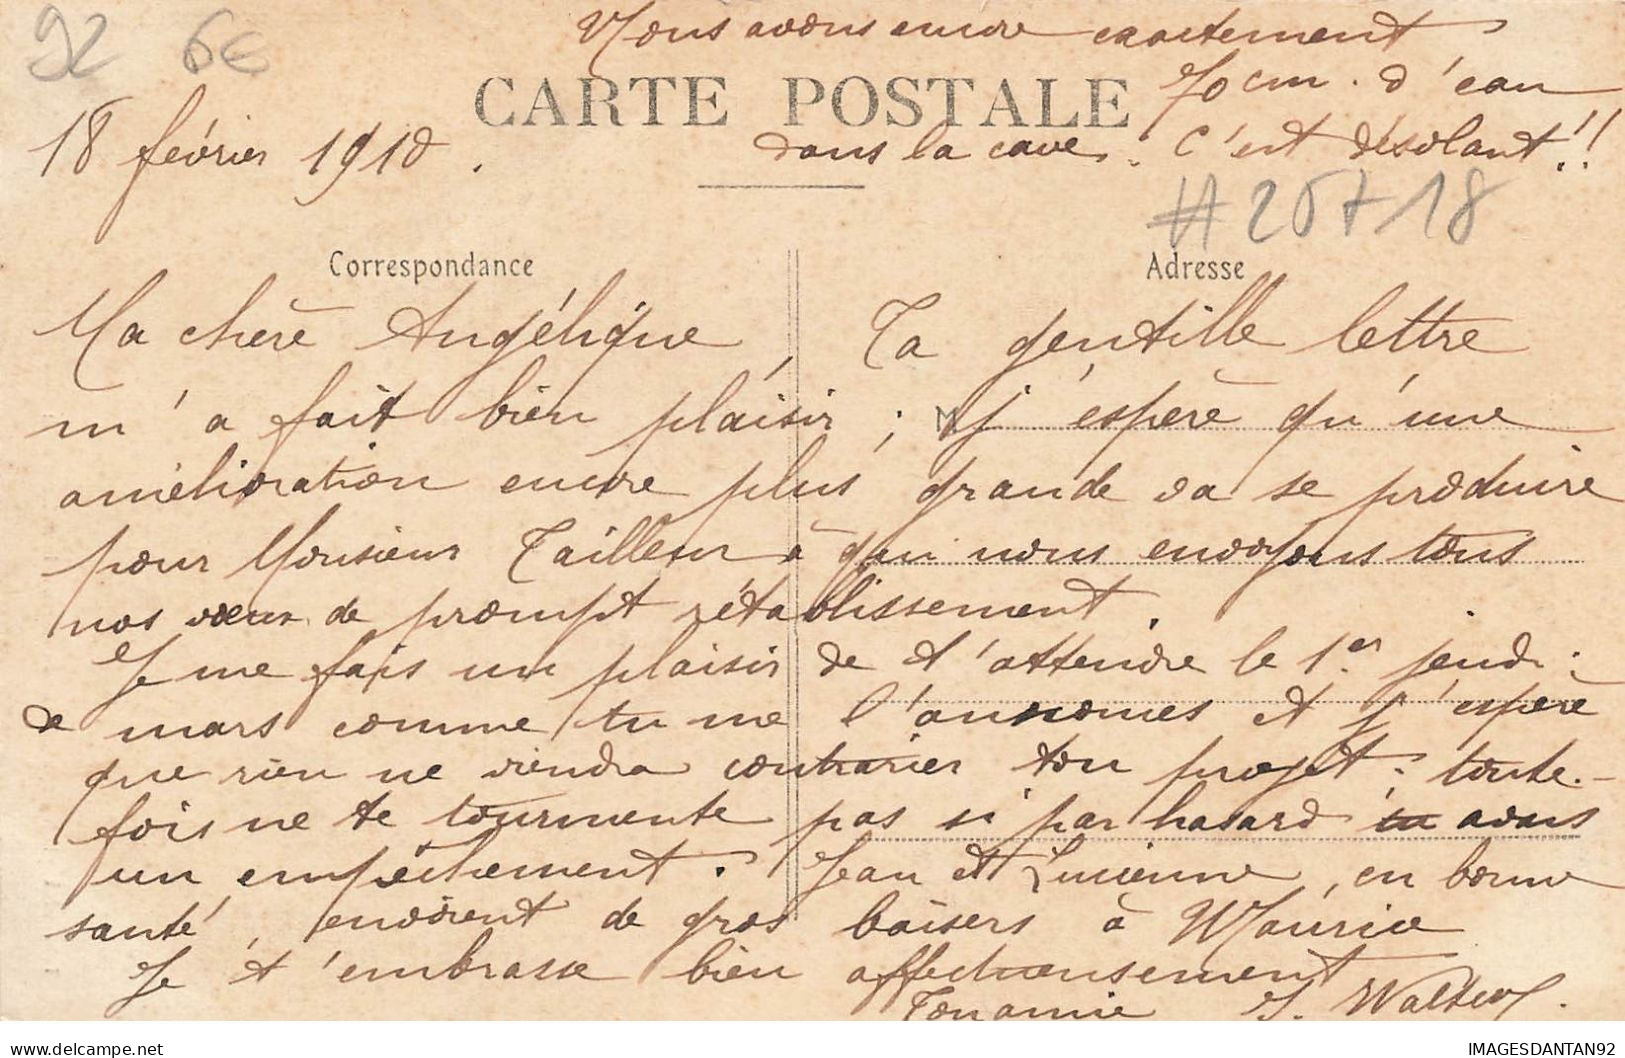 92 6€
Nous avons encore exactement
70 cm. d'eau
CARTE POSTALE
18 février 1910.
dans la cave. C'est désolant!!
#25718
Correspondance
Adresse
Ma chère Angélique, Ta gentille lettre
m'a fait bien plaisir; M j'espère qu'une
amélioration encore plus grande va se produire
pour Monsieur Tailleur à qui nous envoyons tous
nos vœux de prompt rétablissement.
Je me fais un plaisir de t'attendre le 1er jeudi
de mars comme tu me l'annonces et j'espère
que rien ne viendra contrarier ton projet; toute-
fois ne te tourmente pas si par hasard tu avais
un empêchement. Jean et Lucienne, en bonne
santé, envoient de gros baisers à Maurice
Je t'embrasse bien affectueusement
Ton amie S. Walter
IMAGESDANTAN92